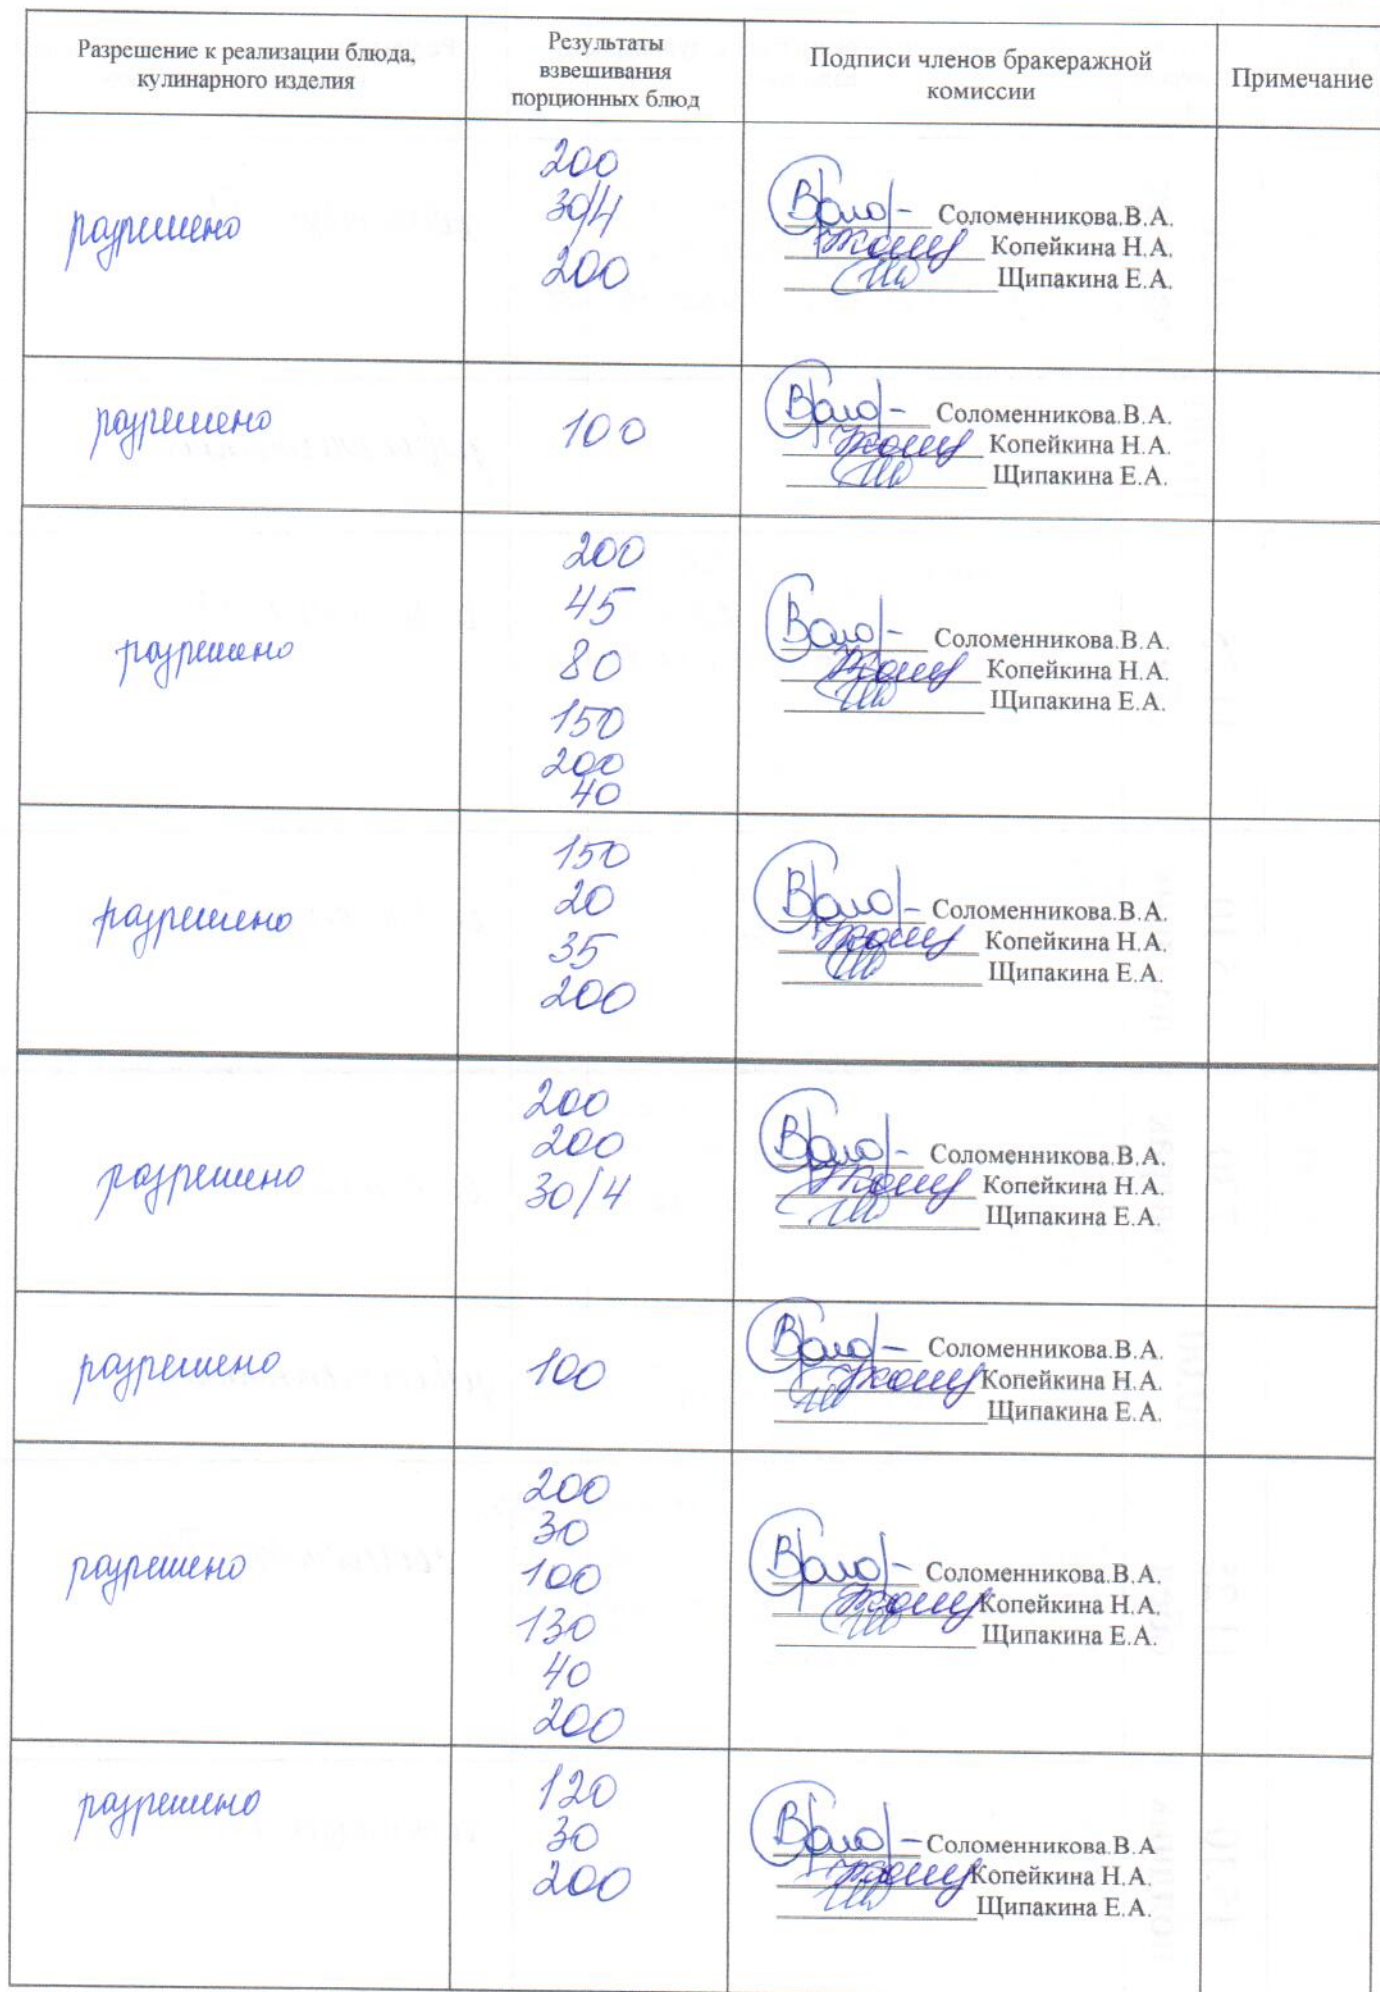 Разрешение к реализации блюда,
кулинарного изделия
Результаты
взвешивания
порционных блюд
Подписи членов бракеражной
комиссии
Примечание
разрешено
200
30/4
200
Соломенникова.В.А.
Копейкина Н.А.
Щипакина Е.А.
разрешено
100
Соломенникова.В.А.
Копейкина Н.А.
Щипакина Е.А.
разрешено
200
45
80
150
200
40
Соломенникова.В.А.
Копейкина Н.А.
Щипакина Е.А.
разрешено
150
20
35
200
Соломенникова.В.А.
Копейкина Н.А.
Щипакина Е.А.
разрешено
200
200
30/4
Соломенникова.В.А.
Копейкина Н.А.
Щипакина Е.А.
разрешено
100
Соломенникова.В.А.
Копейкина Н.А.
Щипакина Е.А.
разрешено
200
30
100
130
40
200
Соломенникова.В.А.
Копейкина Н.А.
Щипакина Е.А.
разрешено
120
30
200
Соломенникова.В.А
Копейкина Н.А.
Щипакина Е.А.